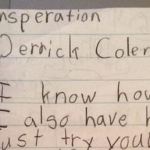 nsperation
Derrick Coler
I know how
I also have h
ust try your